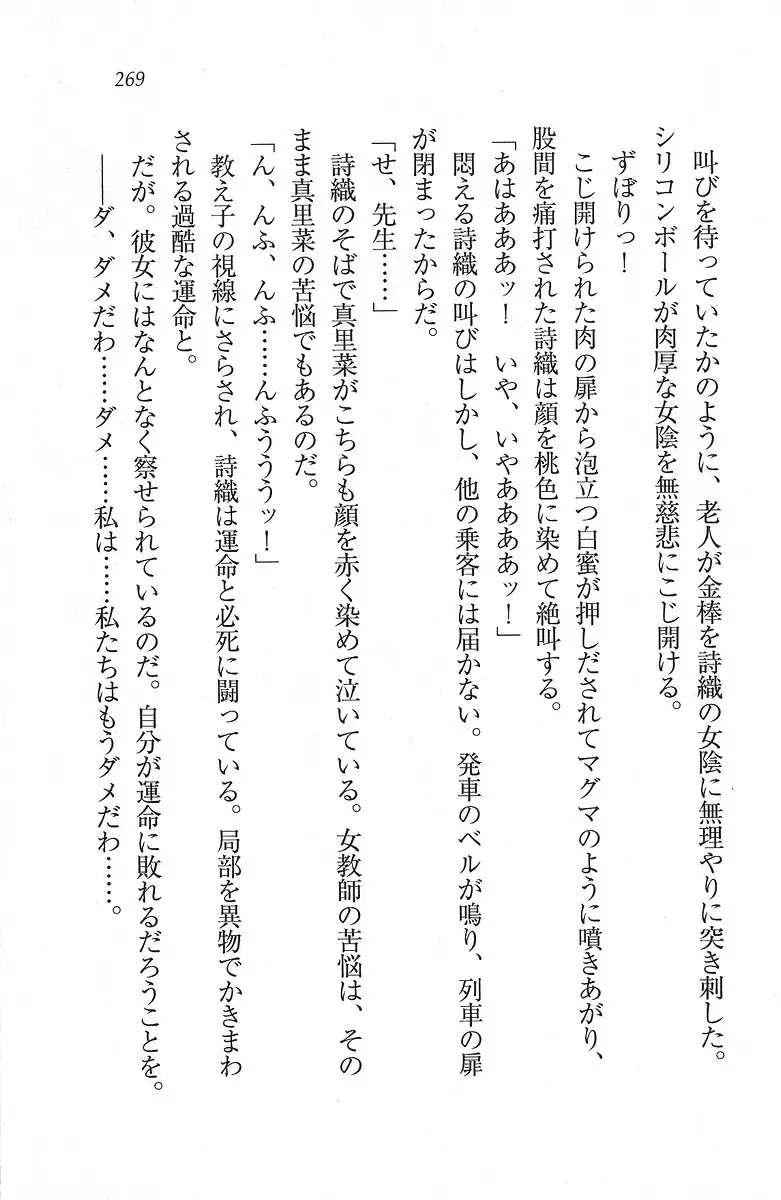 269
叫びを待っていたかのように、老人が金棒を詩織の女陰に無理やりに突き刺した。
シリコンボールが肉厚な女陰を無慈悲にこじ開ける。
ずぼりっ！
こじ開けられた肉の扉から泡立つ白蜜が押しだされてマグマのように噴きあがり、
股間を痛打された詩織は顔を桃色に染めて絶叫する。
「あはあああッ！　いや、いやああああッ！」
悶える詩織の叫びはしかし、他の乗客には届かない。発車のベルが鳴り、列車の扉
が閉まったからだ。
「せ、先生……」
詩織のそばで真里菜がこちらも顔を赤く染めて泣いている。女教師の苦悩は、その
まま真里菜の苦悩でもあるのだ。
「ん、んふ、んふ……んふうううッ！」
教え子の視線にさらされ、詩織は運命と必死に闘っている。局部を異物でかきまわ
される過酷な運命と。
だが。彼女にはなんとなく察せられているのだ。自分が運命に敗れるだろうことを。
――ダ、ダメだわ……ダメ……私は……私たちはもうダメだわ……。